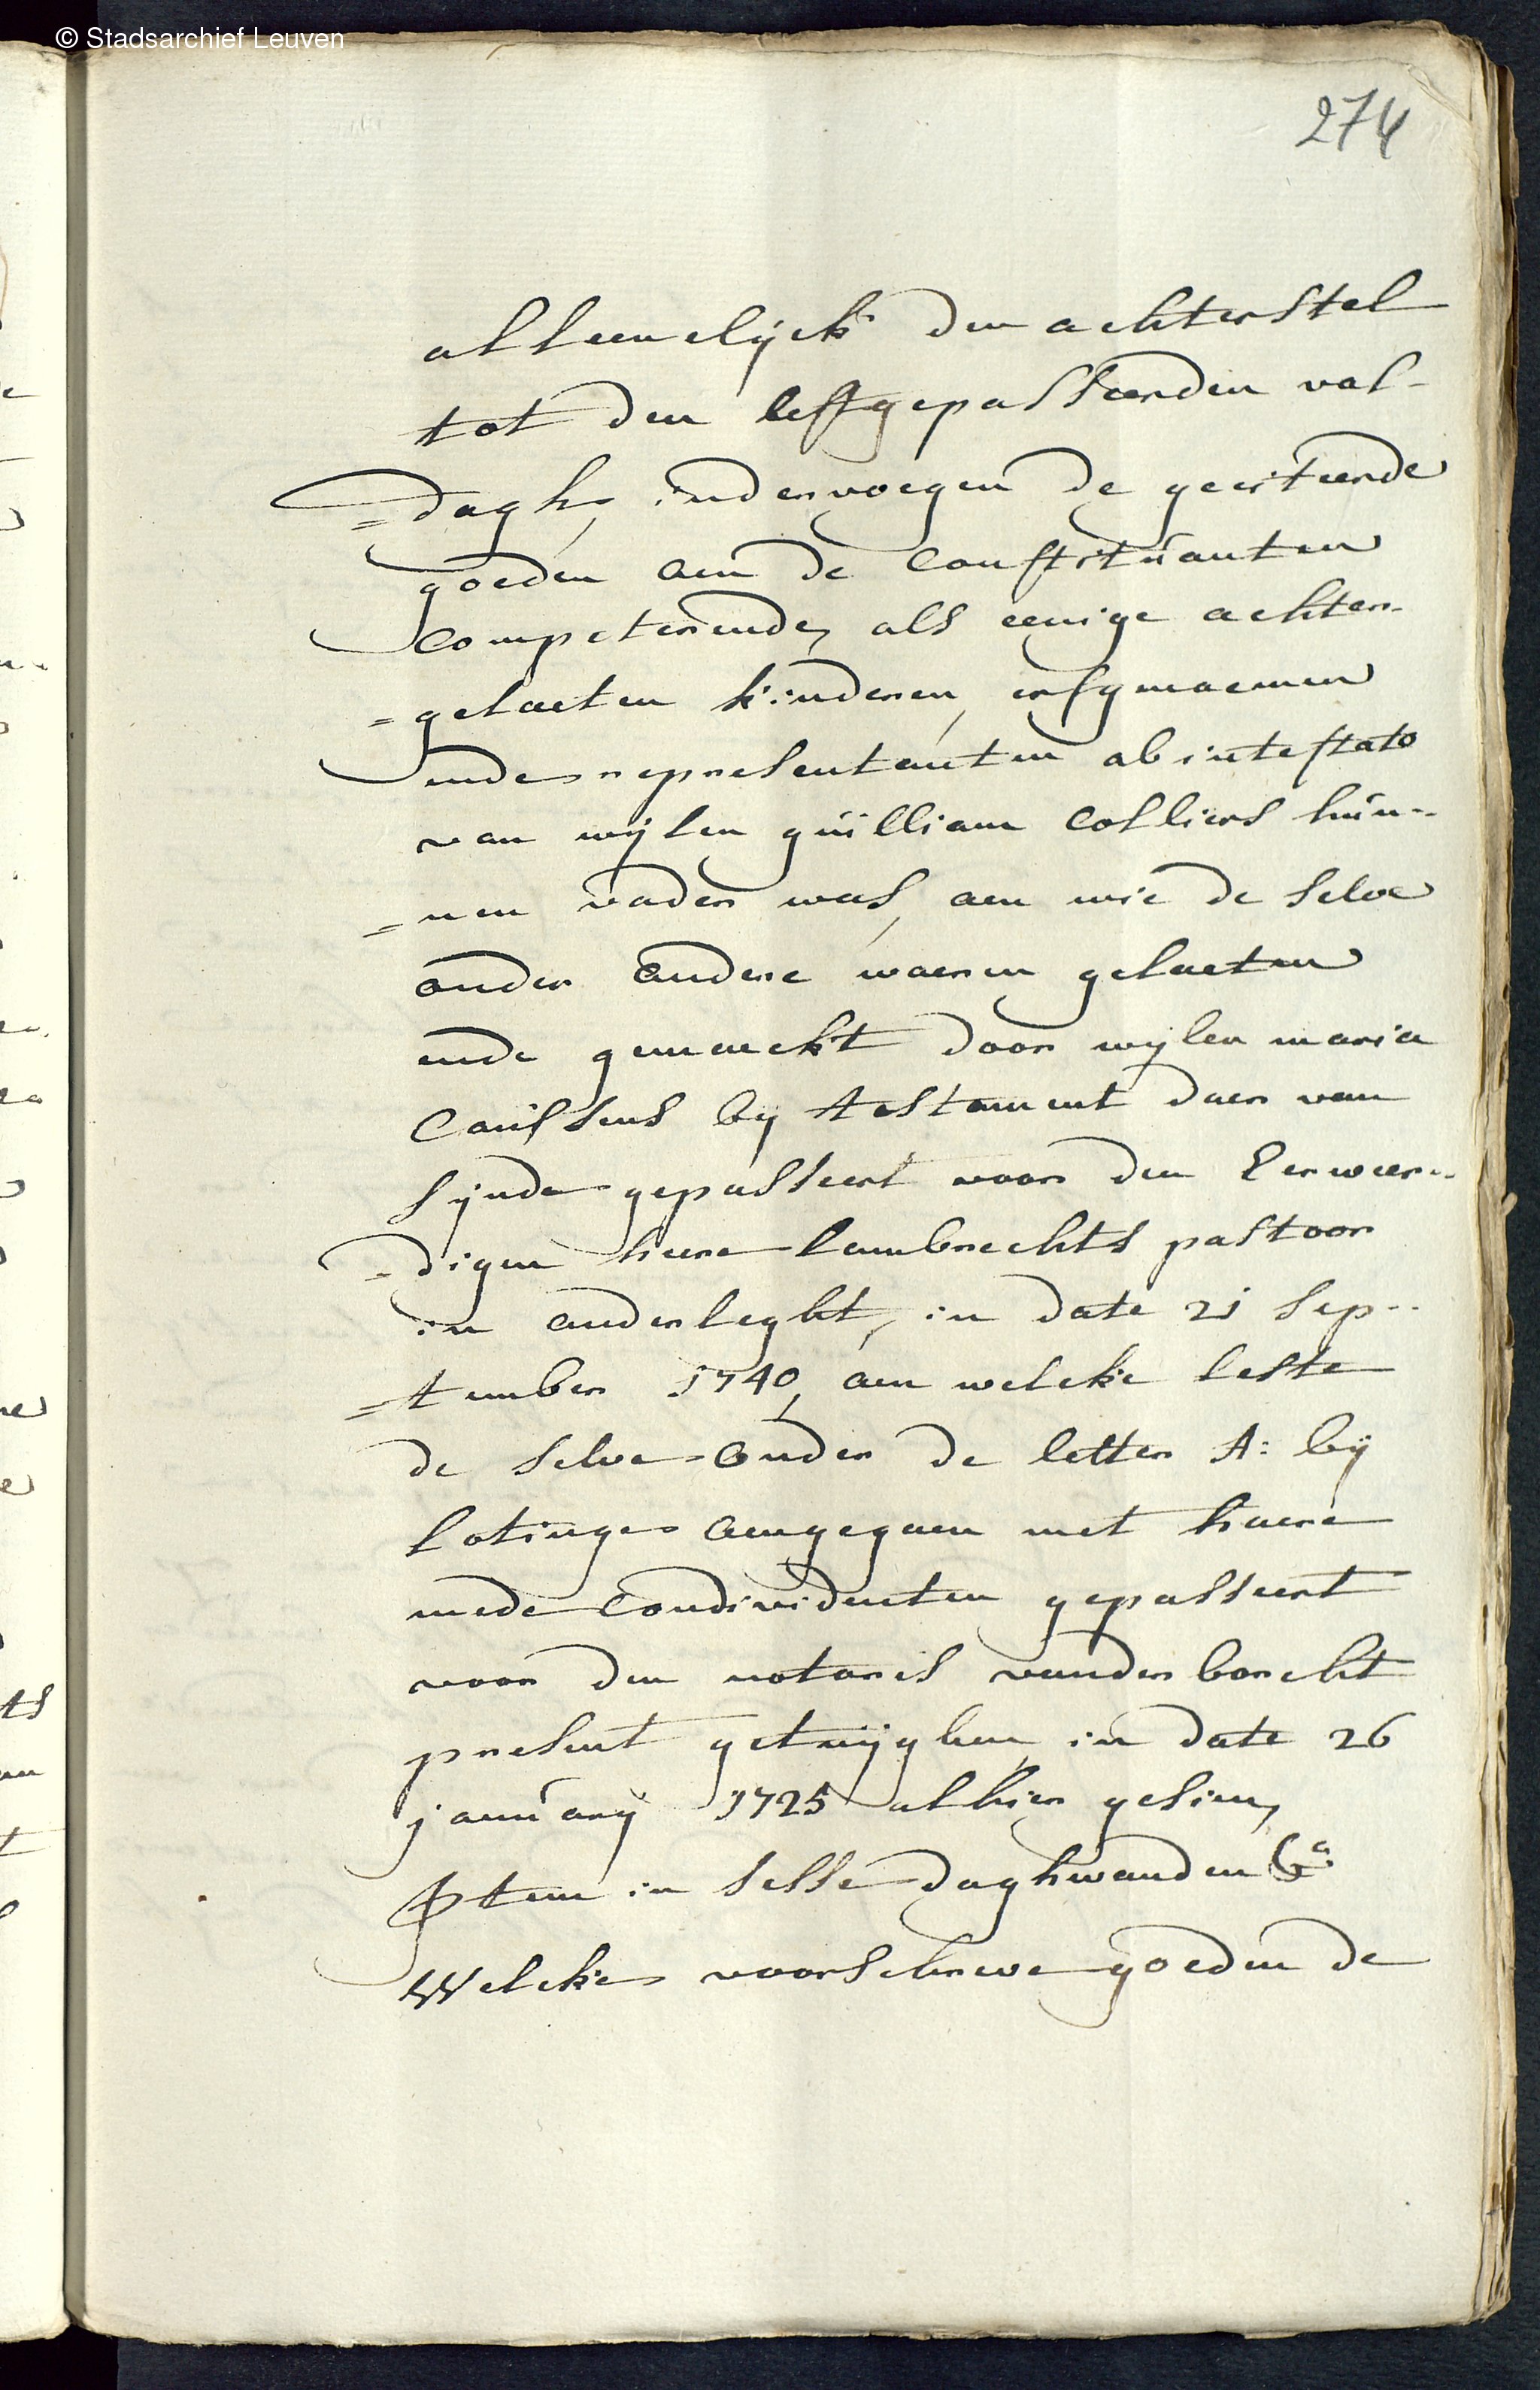 © Stadsarchief Leuven
274
alleenelijck den achterstel
tot den lestgepasseerden val-
=dagh, indervoegen de geciteerde
goeden aen de constituanten
competerende, als eenige achter-
=gelaeten kinderen, erfgenaemen
ende representanten abintestato
van wijlen guilliam Colliers hun-
=nen vader was, aen wie de selve
onder andere waeren gelaeten
ende gemaeckt door wijlen maria
Caussens bij testament daer van
sijnde gepasseert voor den Eerweer-
=digen heere lambrechts pastoor
in anderleght, in date 21 sep-
=tember 1740, aen welcke leste
de selve onder de letter A: bij
lotinge aengegaen met haere
mede condividenten gepasseert
voor den notaris vander borcht
present getuijghen, in date 26
januarij 1725 alhier gesien,
Item in sesse daghwanden &a
Welcke voorschreve goeden de